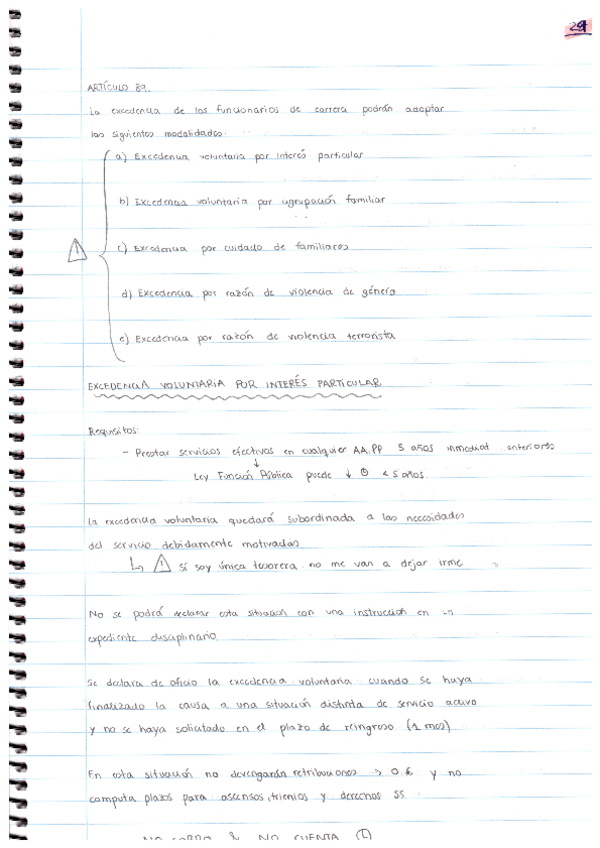 29
ARTÍCULO 89.
La excedencia de los funcionarios de carrera podrán adoptar
las siguientes modalidades:
a) Excedencia voluntaria por interés particular
b) Excedencia voluntaria por agrupación familiar
c) Excedencia por cuidado de familiares
d) Excedencia por razón de violencia de género
e) Excedencia por razón de violencia terrorista
EXCEDENCIA VOLUNTARIA POR INTERÉS PARTICULAR
Requisitos:
- Prestar servicios efectivos en cualquier AA.PP 5 años inmediat. anteriores
↓
Ley Función Pública puede ↓ < 5 años.
La excedencia voluntaria quedará subordinada a las necesidades
del servicio debidamente motivadas
↳ ! Si soy única tesorera no me van a dejar irme
No se podrá declarar esta situación con una instrucción en →
expediente disciplinario.
Se declara de oficio la excedencia voluntaria cuando se haya
finalizado la causa a una situación distinta de servicio activo
y no se haya solicitado en el plazo de reingreso (1 mes)
En esta situación no devengarán retribuciones → 0 € y no
computa plazos para ascensos, trienios y derechos SS.
NO COBRO & NO CUENTA